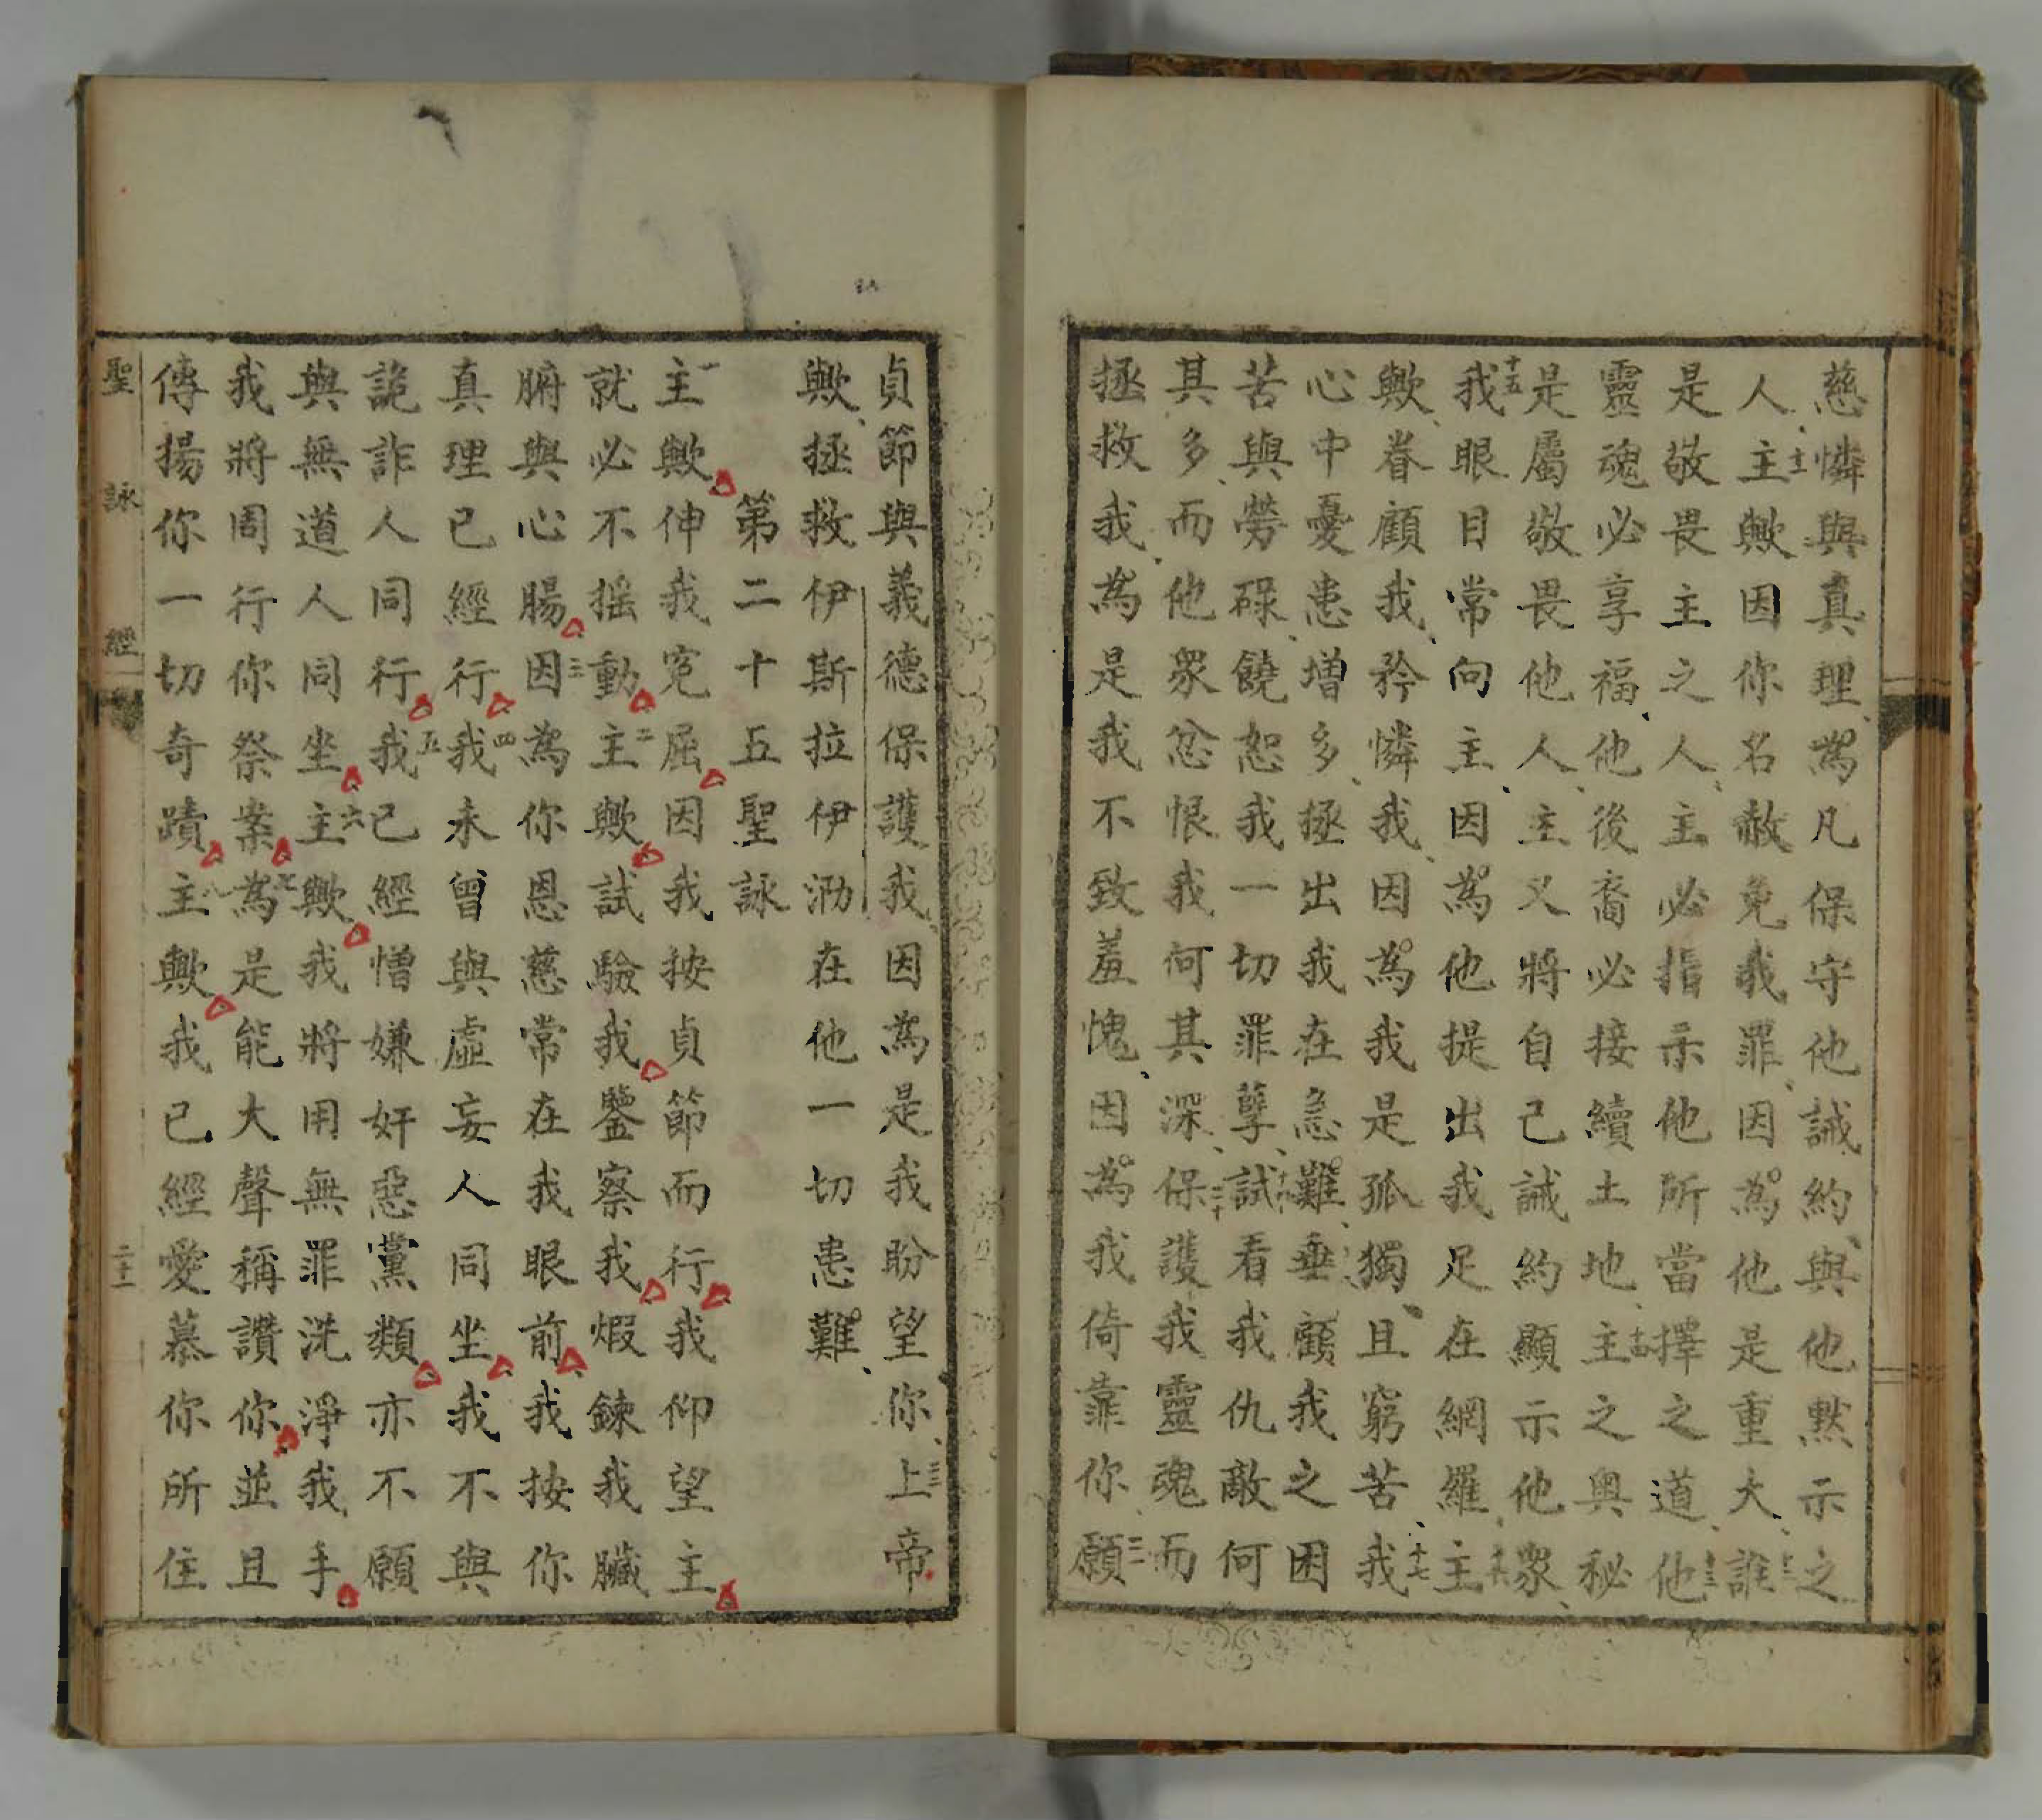 慈憐與真理、為凡保守他誡約、與他默示之
人、十一主歟因你名赦免我罪、因為他是重大、十二誰
是敬畏主之人、主必指示他所當擇之道、十三他
靈魂必享福、他後裔必接續土地、十四主之奧秘
是屬敬畏他人、主又將自己誡約顯示他眾、
十五我眼目常向主、因為他提出我足在網羅、十六主
歟眷顧我、矜憐我、因為我是孤獨、且窮苦、十七我
心中憂患增多、拯出我在急難、十八垂顧我之困
苦與勞碌、饒恕我一切罪孽、十九試看我仇敵何
其多、而他眾忿恨我何其深、二十保護我靈魂而
拯救我、為是我不致羞愧、因為我倚靠你、二一願
貞節與義德保護我、因為是我盼望你、二二上帝
歟、拯救伊斯拉伊泐在他一切患難、
第二十五聖詠
一主歟伸我冤屈因我按貞節而行我仰望主
就必不搖動二主歟試驗我鑒察我煆鍊我臟
腑與心腸三因為你恩慈常在我眼前我按你
真理已經行四我未曾與虛妄人同坐我不與
詭詐人同行五我已經憎嫌奸惡黨類亦不願
與無道人同坐六主歟我將用無罪洗淨我手
我將周行你祭案七為是能大聲稱讚你並且
傳揚你一切奇蹟八主歟我已經愛慕你所住
聖詠經 二十一